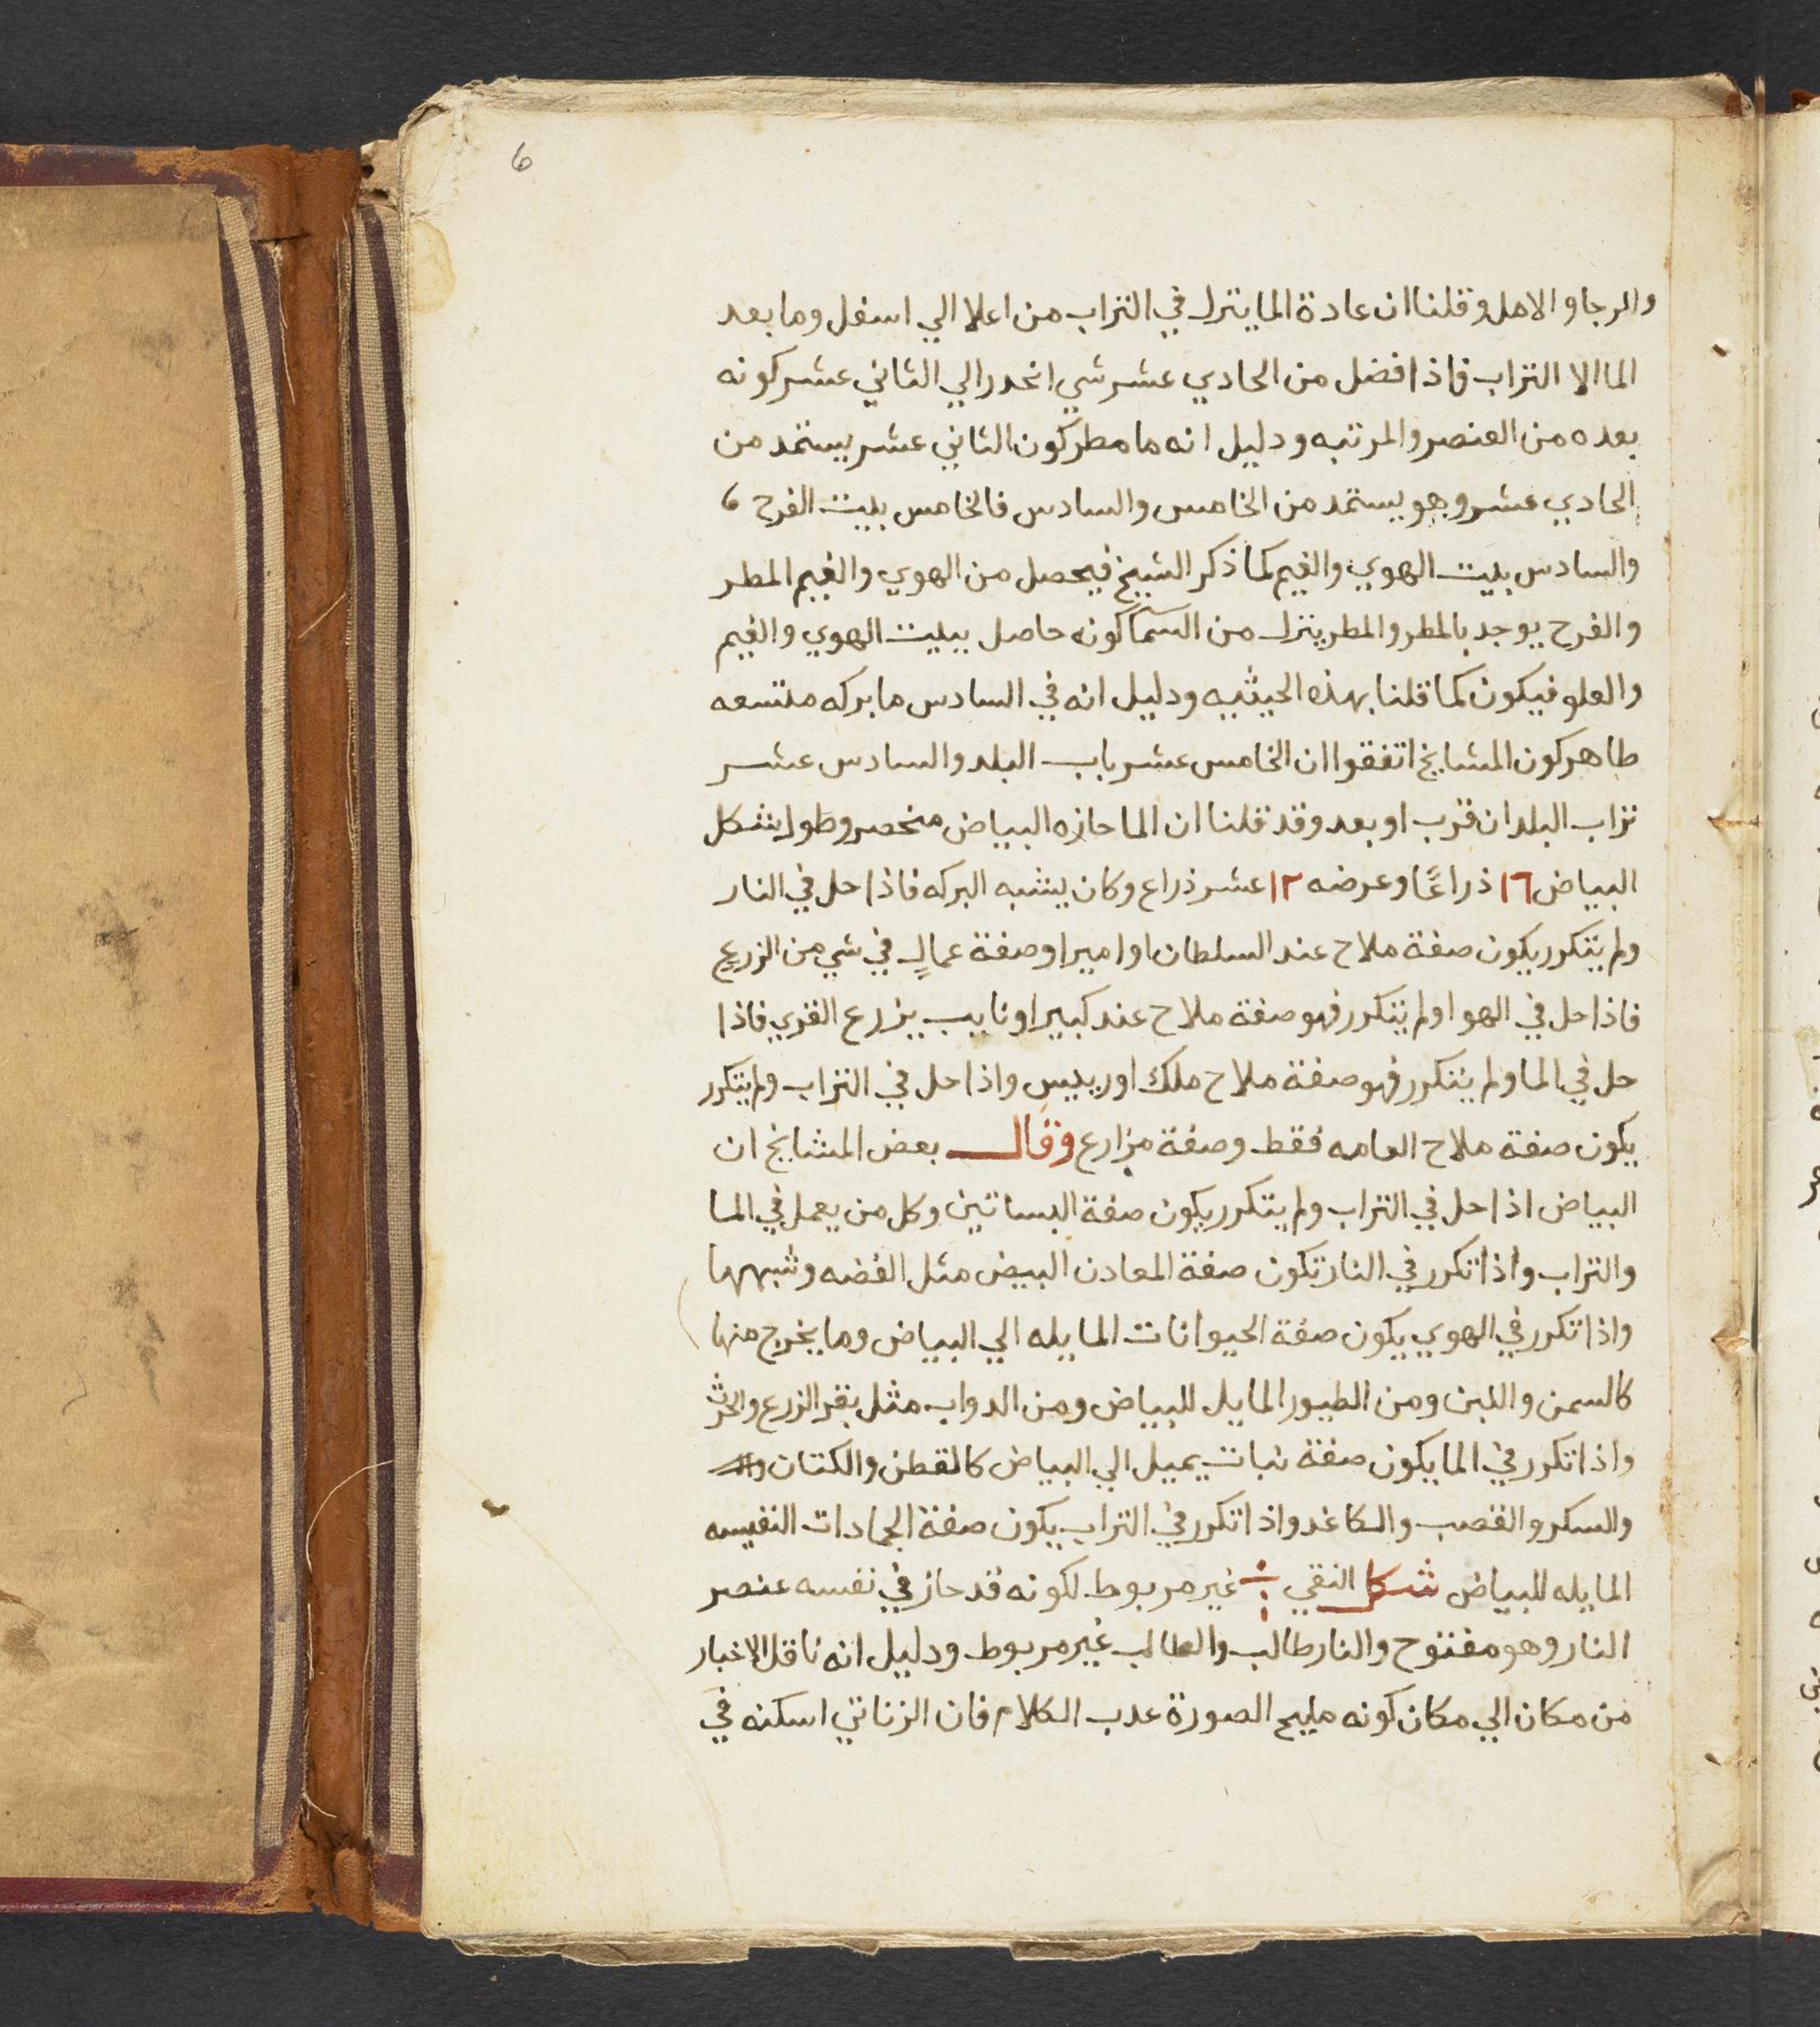 6
والرجا والامل وقلنا ان عادة الما ينزل في التراب من اعلا الي اسفل وما بعد
الما الا التراب فاذا فضل من الحادي عشر شي انحدر الي الثاني عشر كونه
بعده من العنصر والمرتبه ودليل انه ما مطر كون الثاني عشر يستمد من
الحادي عشر وهو يستمد من الخامس والسادس فالخامس بيت الفرح ٥
والسادس بيت الهوي والغيم كما ذكر الشيخ فيحصل من الهوي والغيم المطر
والفرح يوجد بالمطر والمطر ينزل من السما كونه حاصل ببيت الهوي والغيم
والعلو فيكون كما قلنا بهذه الحيثيه ودليل انه في السادس ما بركه متسعه
طاهر كون المشايخ اتفقوا ان الخامس عشر باب البلد والسادس عشر
تراب البلد ان قرب او بعد وقد قلنا ان الما حازه البياض منحصر وطول شكل
البياض ١٦ ذراعًا وعرضه ١٢ عشر ذراع وكان يشبه البركه فاذا حل في النار
ولم يتكرر يكون صفة ملاح عند السلطان او امير او صفة عمالٍ في شي من الزرع
فاذا حل في الهوا ولم يتكرر فهو صفة ملاح عند كبير او نايب يزرع القري فاذا
حل في الما ولم يتكرر فهو صفة ملاح ملك او رييس واذا حل في التراب ولم يتكرر
يكون صفة ملاح العامه فقط وصفة مزارع وقال بعض المشايخ ان
البياض اذا حل في التراب ولم يتكرر يكون صفة البساتين وكل من يعمل في الما
والتراب واذا تكرر في النار تكون صفة المعادن البيض مثل الفضه وشبهها
واذا تكرر في الهوي يكون صفة الحيوانات المايله الي البياض وما يخرج منها
كالسمن واللبن ومن الطيور المايل للبياض ومن الدواب مثل بقر الزرع والحرث
واذا تكرر في الما يكون صفة نبات يميل الي البياض كالقطن والكتان
والسكر والقصب والكاغد واذا تكرر في التراب يكون صفة الجمادات النفيسه
المايله للبياض شكل النقي غير مربوط لكونه قد حاز في نفسه عنصر
النار وهو مفتوح والنار طالب والطالب غير مربوط ودليل انه ناقل الاخبار
من مكان الي مكان كونه مليح الصورة عدب الكلام فان الزناتي اسكنه في